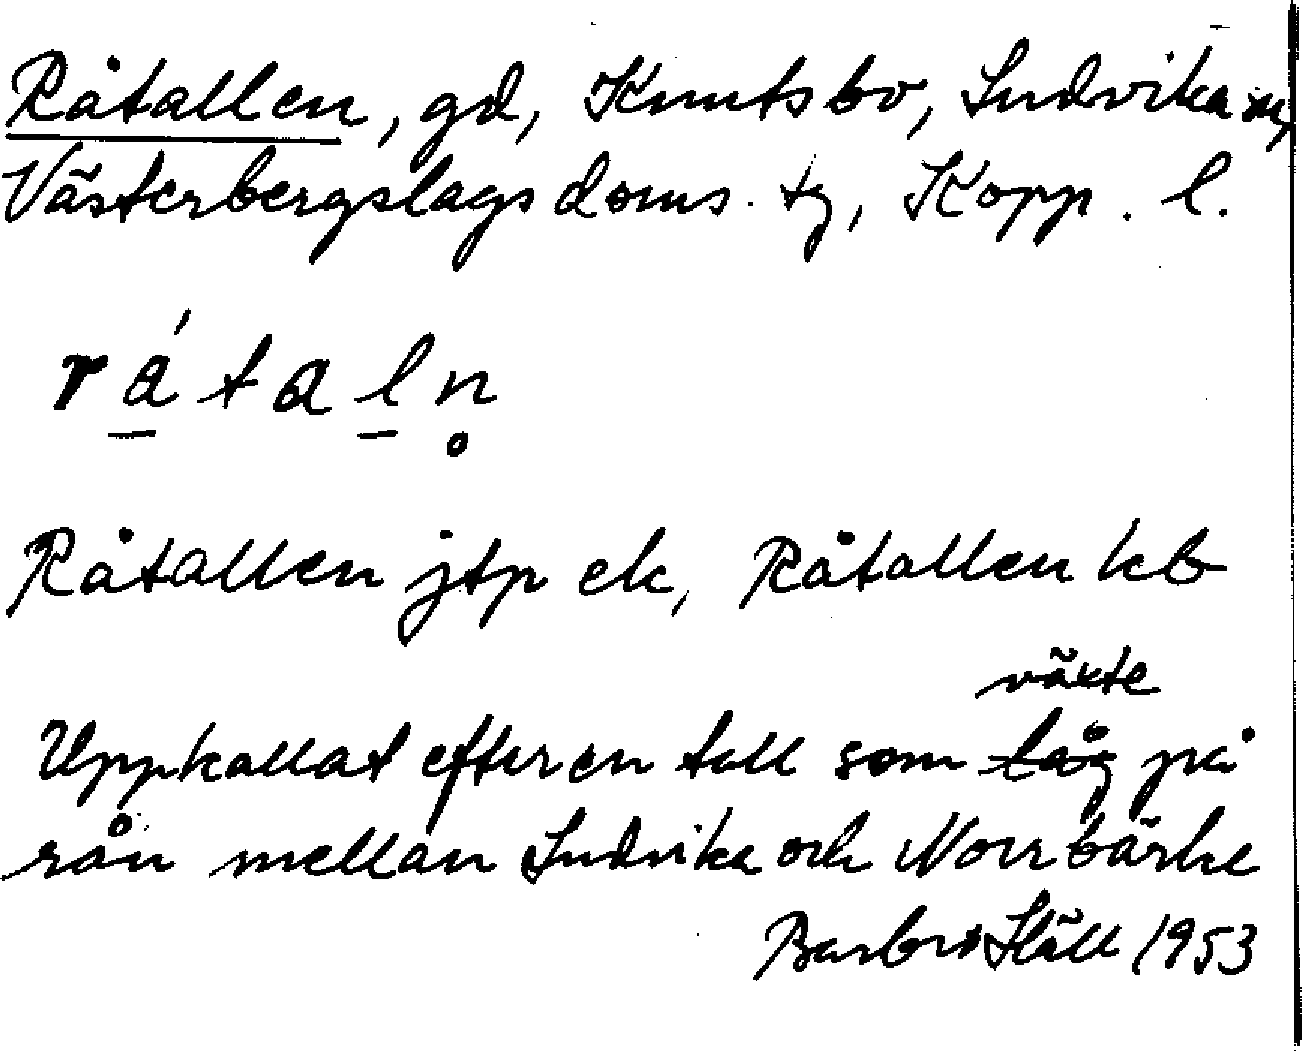 Råtallen, gd, Knutsbo, Ludvika sn,
Västerbergslags doms. tg, Kopp. l.
rá̱taḻn̥
Råtallen jtp ek, Råtallen kb
växte
Uppkallat efter en tall som låg på
rån mellan Ludvika och Norrbärke
Barbro Häll 1953